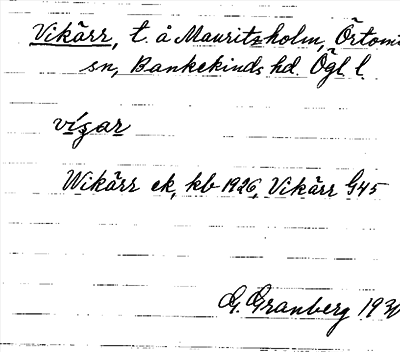 Vikärr, t. å Mauritzholm, Örtomt
sn, Bankekinds hd. Ögl l.
vígar
Wikärr ek, kb 1926, Vikärr G45
G. Granberg 1930